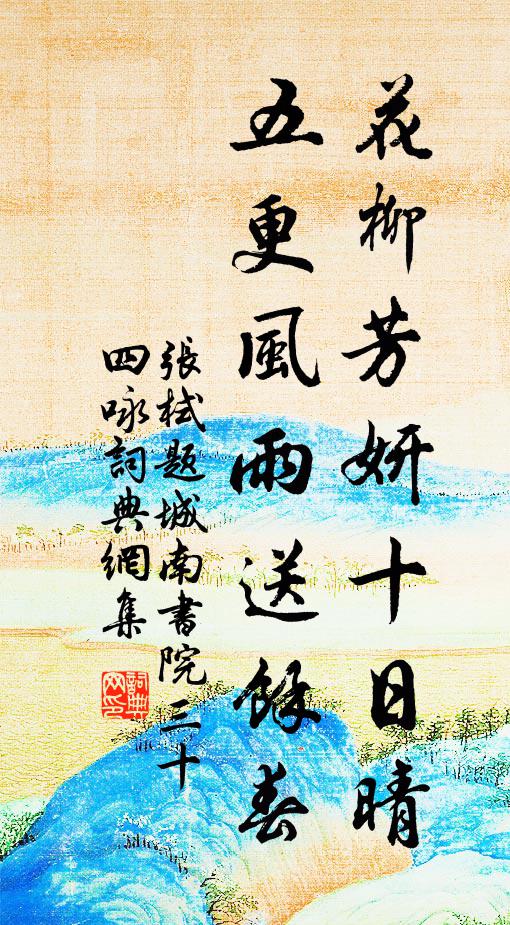 花柳芳妍十日晴
五更風雨送餘春
張栻題城南書院三十
四咏詞典網集